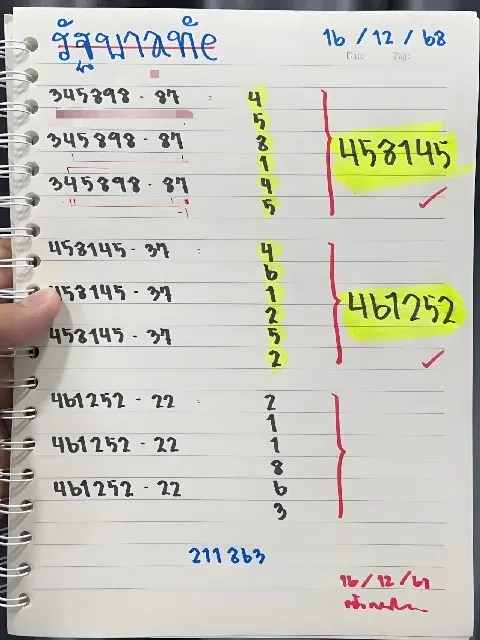 16 / 12 / 68
Date Page
345898 - 87 : 4
5
345898 - 87 8
1
345898 - 87 4
5
458145
458145 - 37 : 4
6
458145 - 37 1
2
458145 - 37 5
2
461252
461252 - 22 : 2
1
461252 - 22 1
8
461252 - 22 6
3
211863
16 / 12 / 67